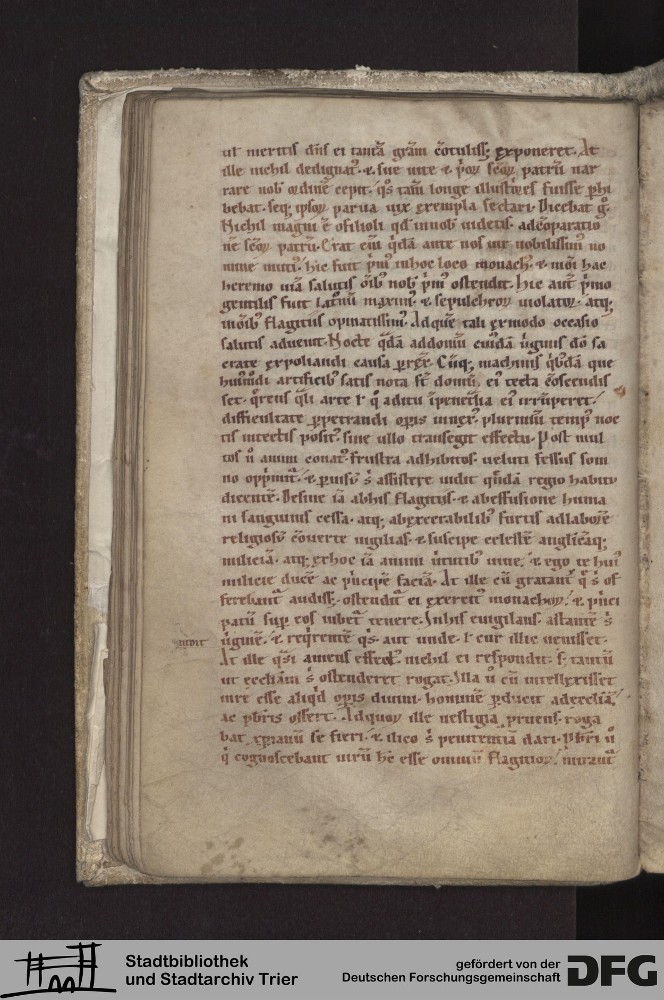 ut meritis dn̄s ei tantā grām cōtuliss; exponeret. At
ille nichil dedignat᷒. & sue uite & p̄oꝝ sc̄oꝝ patrū nar
rare nob᷒ ordinē cepit. q̄s tam̄ longe illustrores fuisse phi
bebat. seq; ipsoꝝ parua uix exempla sectari. Dicebat g̊.
Nichil magni ē o filioli qd̄ in nob᷒ uidetis. ad cōparatio
nē sc̄oꝝ patrū. Erat eni̅ q̇dā ante nos uir nobilissim᷒ no
mine muti᷒. hic fuit p̄m᷒ in hoc loco monach᷒. & om̄i hac
heremo uiā salutis om̄ib᷒ nob᷒ p̄m᷒ ostendit. Hic aut̄ p̄mo
gentilis fuit latronū maxim᷒. & sepulchroꝝ uiolator. atq;
in om̄ib᷒ flagitiis opinatissim᷒. Ad quē tali ex modo occasio
salutis aduenit. Nocte q̇dā ad domū cuidā uirginis dō sa
crate expoliandi causa perḡē. Cūq; machinis q̇bdā que
hui᷒modi artificib᷒ satis nota st̄ domū, ei᷒ tecta cōscendis
set. q̄rens q̄li arte ł q̊ aditu īpenetralia ei᷒ irrūperet.
difficultate ꝑpetrandi opis innex᷒. plurimū temp᷒ noc
tis intectis posit᷒. sine ullo transegit effectu. Post mul
tos ů animi conat᷒. frustra adhibitos. ueluti fessus som
no opp̄mit᷒. & ꝑ uisū s᷒ assistere uidit quendā regio habitu
dicentē. Desine iā ab his flagitiis. & ab effusione huma
ni sanguinis cessa. atq; ab execrabilib᷒ furtis ad laborē
religiosū cōuerte uigilias. & suscipe celestē anglicāq;
miliciā. atq; ex hoc iā animi uirtutib᷒ uiue. & ego te hui᷒
milicie ducē ac p̄ncipē faciā. At ille cū gratant᷒ q̄ s᷒ of
ferebant᷒ audiss;. ostendit᷒ ei exercit᷒ monachoꝝ. & p̄nci
patū sup̄ eos iubet᷒ tenere. In his euigilans. astantē s᷒
uirginē. & reqrentē q̇s. aut unde. ł cur illic uenisset.
At ille q̄si amens effect᷒. nichil ei respondit. s; tantū
ut eccliam s᷒ ostenderet rogat. Illa ů cū intellexisset
inre esse aliq̇d opis diuini. hominē ꝑducit ad eccliā.
ac pbr̄is offert. Ad quoꝝ ille uestigia pruens. roga
bat xpianū se fieri. & ilico s᷒ penitentiā dari. Pbr̄i ů
q̇ cognoscebant uirū hc̄ esse omniū flagitioꝝ. mirant᷒
Stadtbibliothek
und Stadtarchiv Trier
gefördert von der
Deutschen Forschungsgemeinschaft
DFG